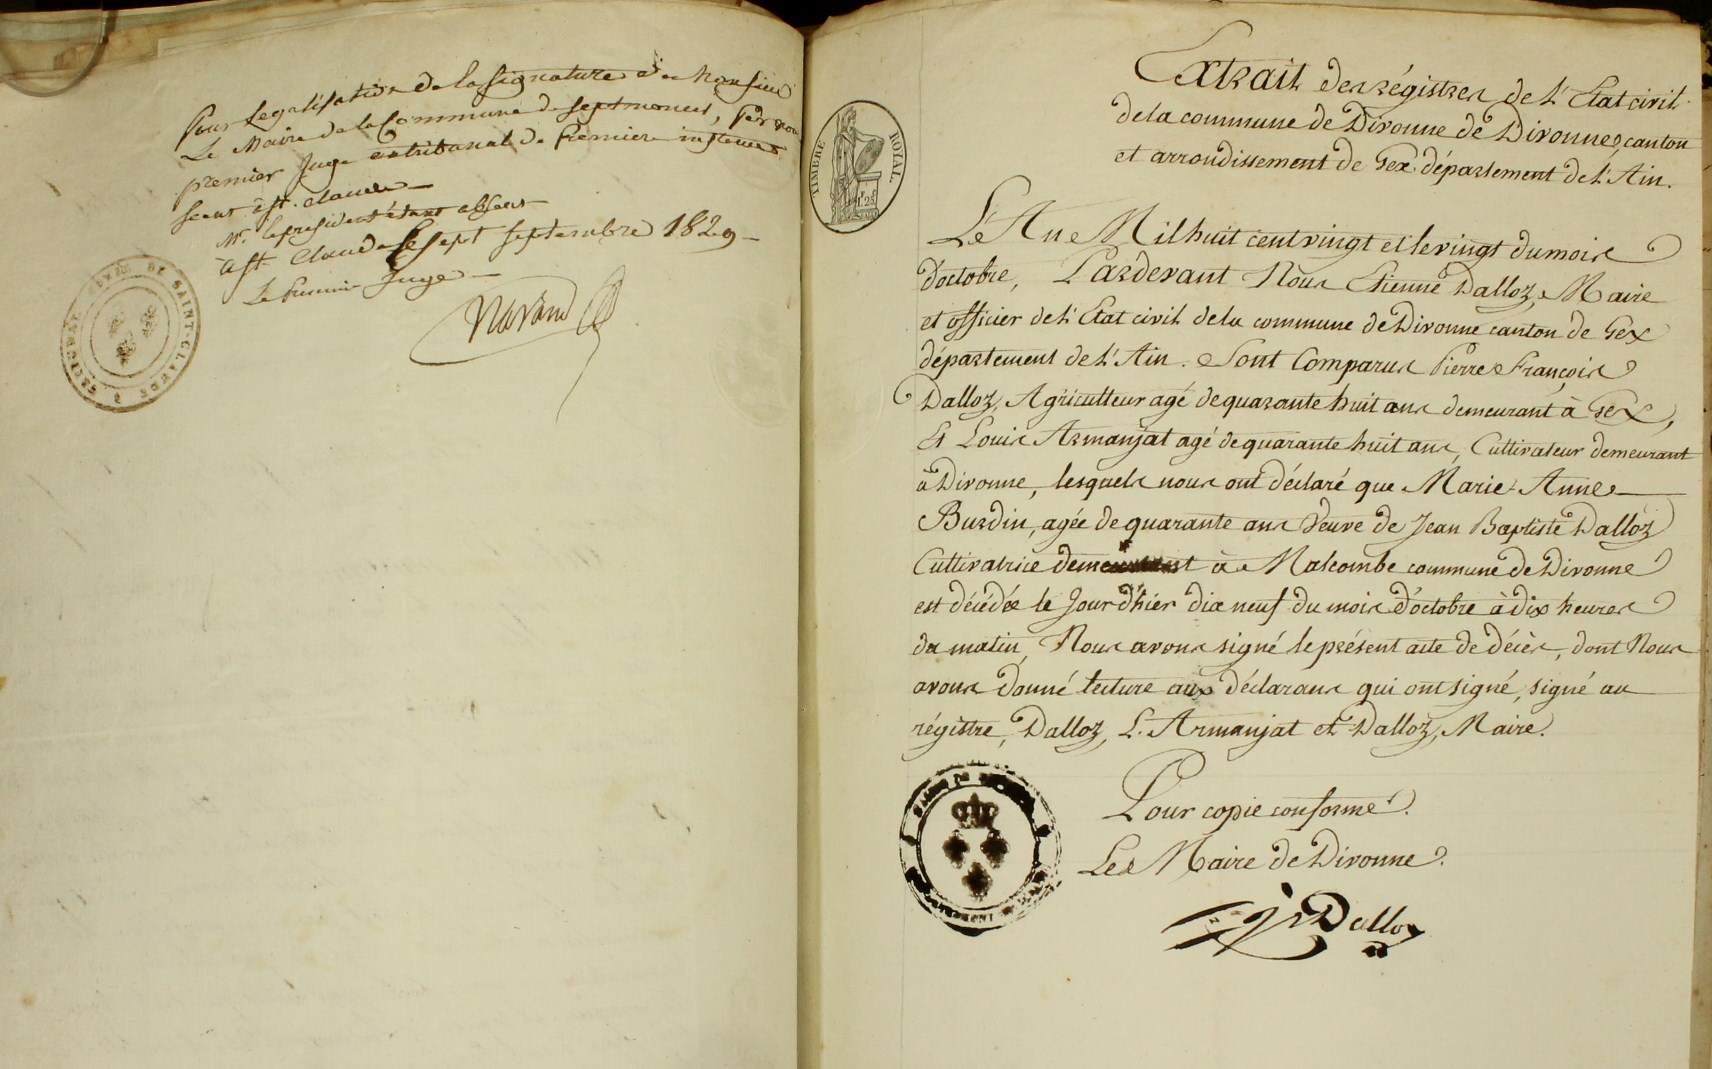 Pour Legalisation de la signature de Monsieur
Le Maire de la Commune de Septmoncel, par nous
premier Juge au tribunal de premiere instance
seant à St. Claude
Mr. le president étant absent
à St. Claude le sept septembre 1829
Le Premier Juge
SAINT-CLAUDE
TIMBRE ROYAL.
Extrait des régistres de l'Etat civil
de la commune de Divonne de Divonne, canton
et arrondissement de Gex, département de l'Ain.
L'An Mil huit cent vingt et le vingt du mois
d'octobre, Pardevant Nous Etienne Dalloz, Maire
et officier de l'Etat civil de la commune de Divonne canton de Gex
département de l'Ain. Sont Comparus Pierre François
Dalloz, Agriculteur agé de quarante huit ans demeurant à Gex,
Et Louis Armanjat agé de quarante huit ans, Cultivateur demeurant
à Divonne, lesquels nous ont déclaré que Marie-Anne
Burdin, agée de quarante ans Veuve de Jean Baptiste Dalloz
Cultivatrice demeurant à Malcombe commune de Divonne
est décédée le Jour d'hier dix neuf du mois d'octobre à dix heures
du matin, Nous avons signé le présent acte de décès, dont Nous
avons donné lecture aux déclarans qui ont signé, signé au
régistre, Dalloz, L. Armanjat et Dalloz, Maire.
Pour copie conforme.
Le Maire de Divonne.
Dalloz